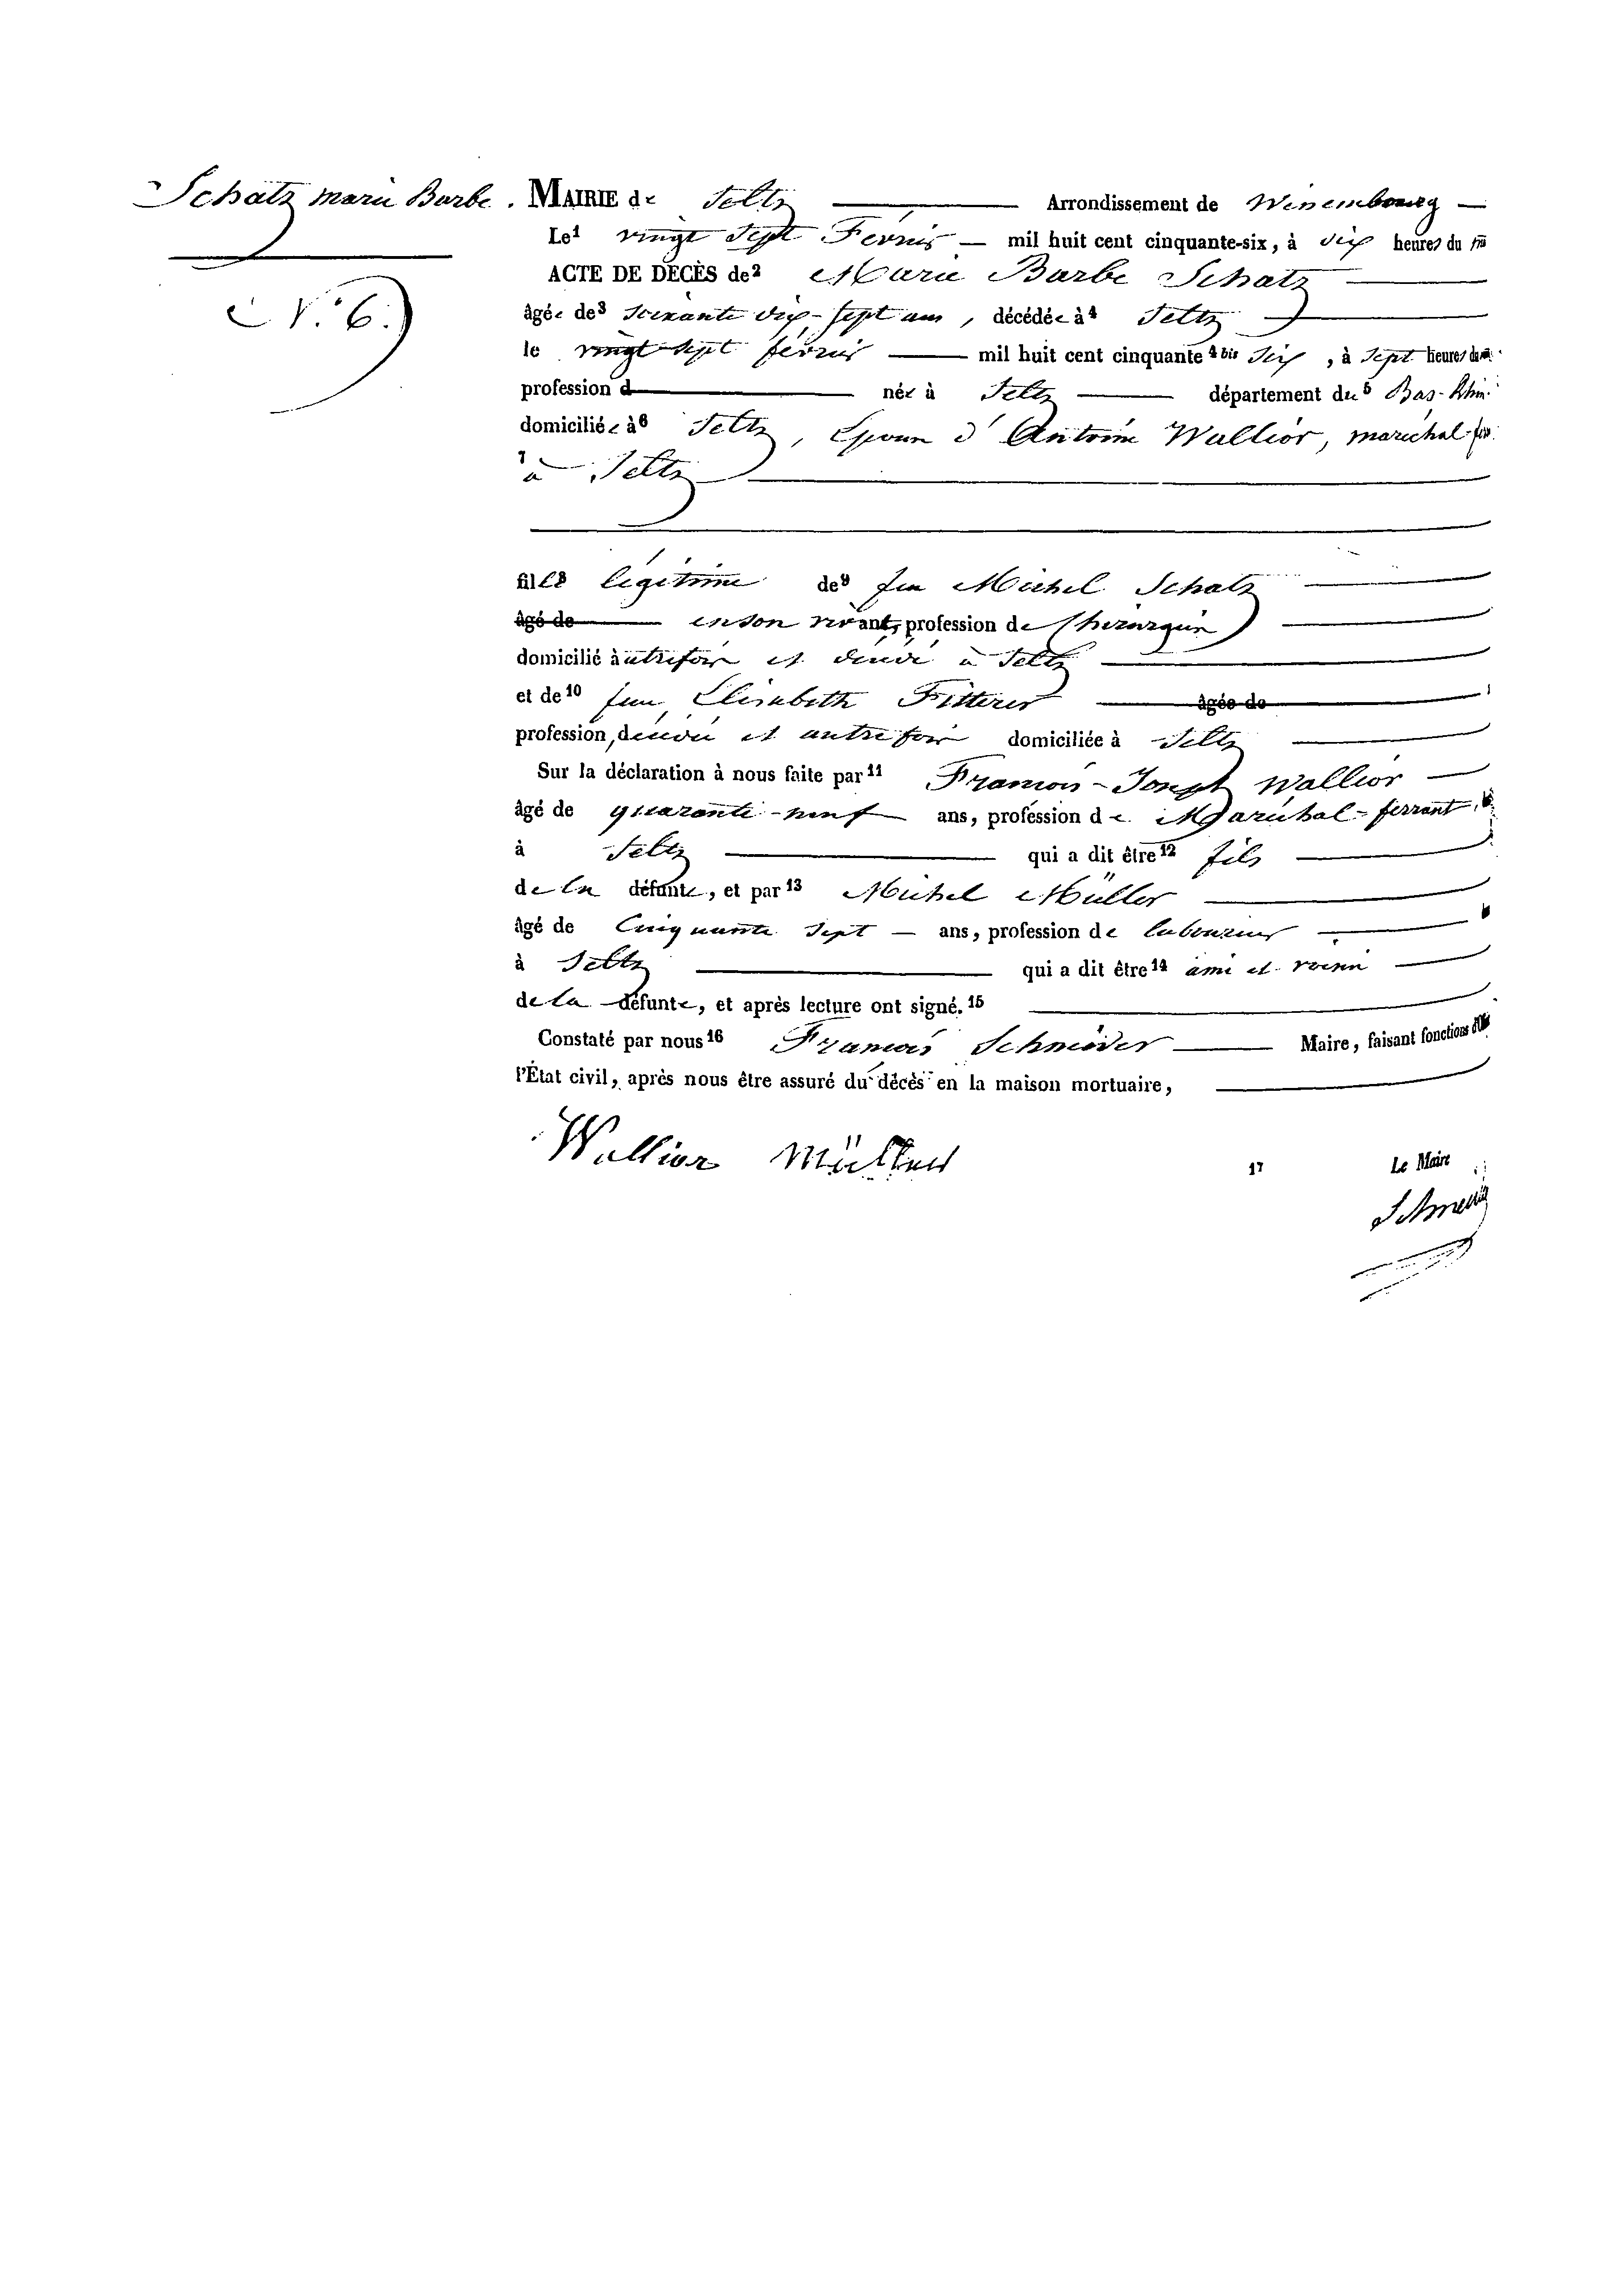 Schatz Marie Barbe.
N.° 6.
MAIRIE de Seltz Arrondissement de Wissembourg
Le¹ vingt Sept Février mil huit cent cinquante-six, à dix heures du
ACTE DE DÉCÈS de² Marie Barbe Schatz
âgée de³ soixante dix-sept ans, décédée à⁴ Seltz
le vingt sept février mil huit cent cinquante ⁴ ᵇⁱˢ Six, à Sept heures du
profession d née à Seltz département du⁵ Bas-Rhin
domiciliée à⁶ Seltz, Epouse d'Antoine Wallior, maréchal
⁷ à Seltz
fille⁸ légitime de⁹ feu Michel Schatz
âgé de en son vivant, profession de Chirurgien
domicilié autrefois et décédé à Seltz
et de¹⁰ feue Elisabeth Fitterer âgée de
profession, décédée et autrefois domiciliée à Seltz
Sur la déclaration à nous faite par¹¹ François-Joseph Wallior
âgé de quarante-neuf ans, profession de Maréchal-ferrant
à Seltz qui a dit être¹² fils
de la défunte, et par¹³ Michel Müller
âgé de Cinquante Sept ans, profession de laboureur
à Seltz qui a dit être¹⁴ ami et voisin
de la défunte, et après lecture ont signé.¹⁵
Constaté par nous¹⁶ François Schneider Maire, faisant fonctions
l'État civil, après nous être assuré du décès en la maison mortuaire,
Wallior Müller
17 Le Maire